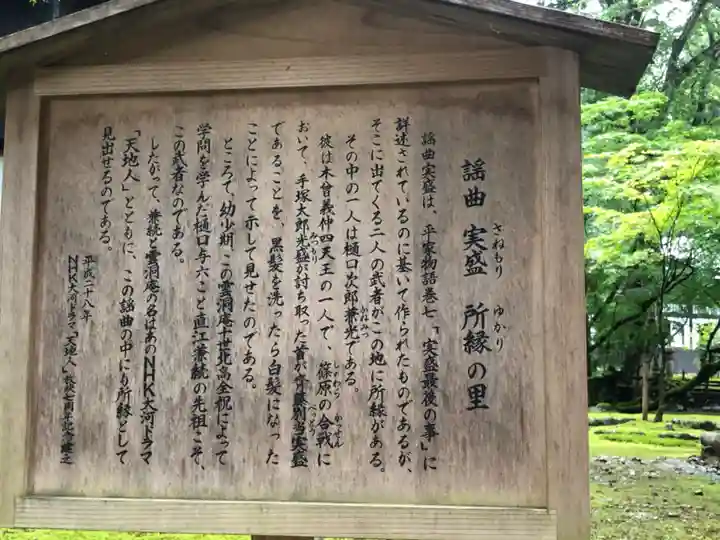 謡曲 実盛 所縁の里
さねもり ゆかり
謡曲実盛は、平家物語巻七、「実盛最後の事」に
詳述されているのに基いて作られたものであるが、
そこに出てくる二人の武者がこの地に所縁がある。
その中の一人は樋口次郎兼光である。
かねみつ
彼は木曾義仲四天王の一人で、篠原の合戦に
しのわら かっせん
おいて、手塚太郎光盛が討ち取った首が斉藤別当実盛
みつもり べっとう
であることを、黒髪を洗ったら白髪になった
ことによって示して見せたのである。
ところで、幼少期、この雲洞庵十世北高全祝によって
学問を学んだ樋口与六こと直江兼続の先祖こそ、
この武者なのである。
したがって、兼続と雲洞庵の名はあのNHK大河ドラマ
「天地人」とともに、この謡曲の中にも所縁として
見出せるのである。
平成二十八年
NHK大河ドラマ「天地人」放送七周年記念建之